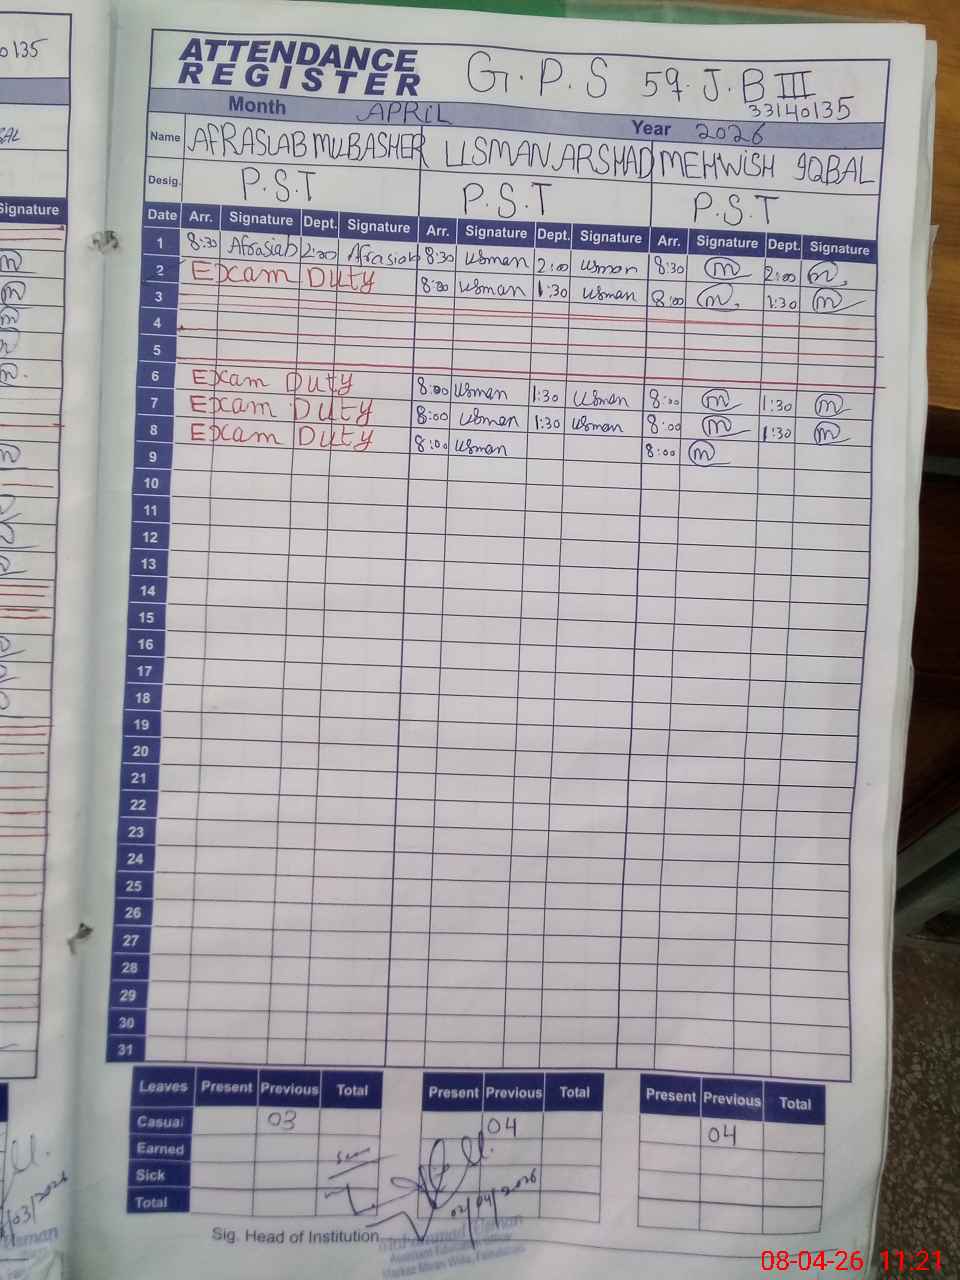 ATTENDANCE REGISTER G.P.S 59.J.B III
33140135
Month APRIL Year 2026
Name AFRASIAB MUBASHER USMAN.ARSHAD MEHWISH IQBAL
Desig. P.S.T P.S.T P.S.T
Date Arr. Signature Dept. Signature Arr. Signature Dept. Signature Arr. Signature Dept. Signature
1 8:30 Afrasiab 2:00 Afrasiab 8:30 usman 2:00 usman 8:30 m 2:00 m
2 Exam Duty 8:00 usman 1:30 usman 8:00 m 1:30 m
3
4
5
6 Exam Duty 8:00 usman 1:30 usman 8:00 m 1:30 m
7 Exam Duty 8:00 usman 1:30 usman 8:00 m 1:30 m
8 Exam Duty 8:00 usman 8:00 m
9
10
11
12
13
14
15
16
17
18
19
20
21
22
23
24
25
26
27
28
29
30
31
Leaves Present Previous Total Present Previous Total Present Previous Total
Casual 03 04 04
Earned
Sick
Total
02/04/2026
Sig. Head of Institution
Assistant Education Officer
08-04-26 11:21
0135
Signature